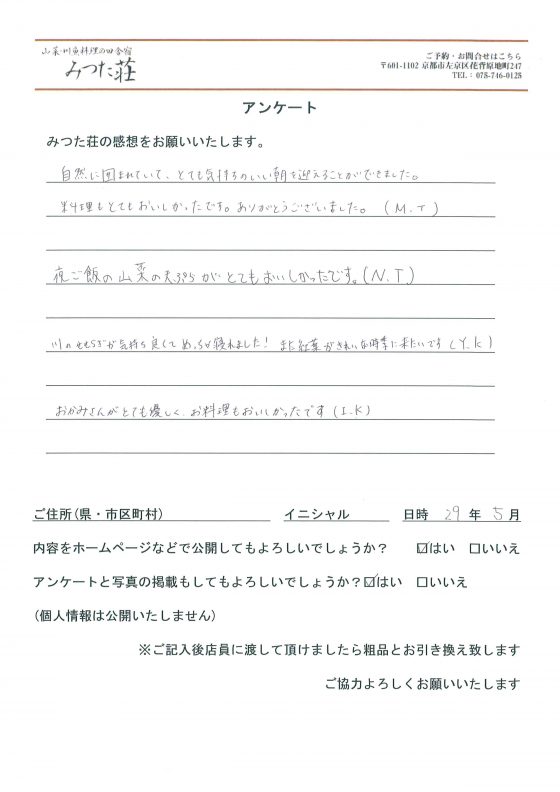 山菜・川魚料理の田舎宿
みつた荘
ご予約・お問合せはこちら
〒601-1102 京都市左京区花脊原地町247
TEL : 075-746-0128
アンケート
みつた荘の感想をお願いいたします。
自然に囲まれていて、とても気持ちのいい朝を迎えることができました。
料理もとてもおいしかったです。ありがとうございました。(M.T)
夜ご飯の山菜の天ぷらがとてもおいしかったです。(N.T)
川のせせらぎが気持ち良くてめっちゃ寝れました! また紅葉がきれいな時季に来たいです (Y.K)
おかみさんがとても優しく、お料理もおいしかったです (I.K)
ご住所(県・市区町村) イニシャル 日時 29 年 5 月
内容をホームページなどで公開してもよろしいでしょうか? ☑はい □いいえ
アンケートと写真の掲載もしてもよろしいでしょうか?☑はい □いいえ
(個人情報は公開いたしません)
※ご記入後店員に渡して頂けましたら粗品とお引き換え致します
ご協力よろしくお願いいたします